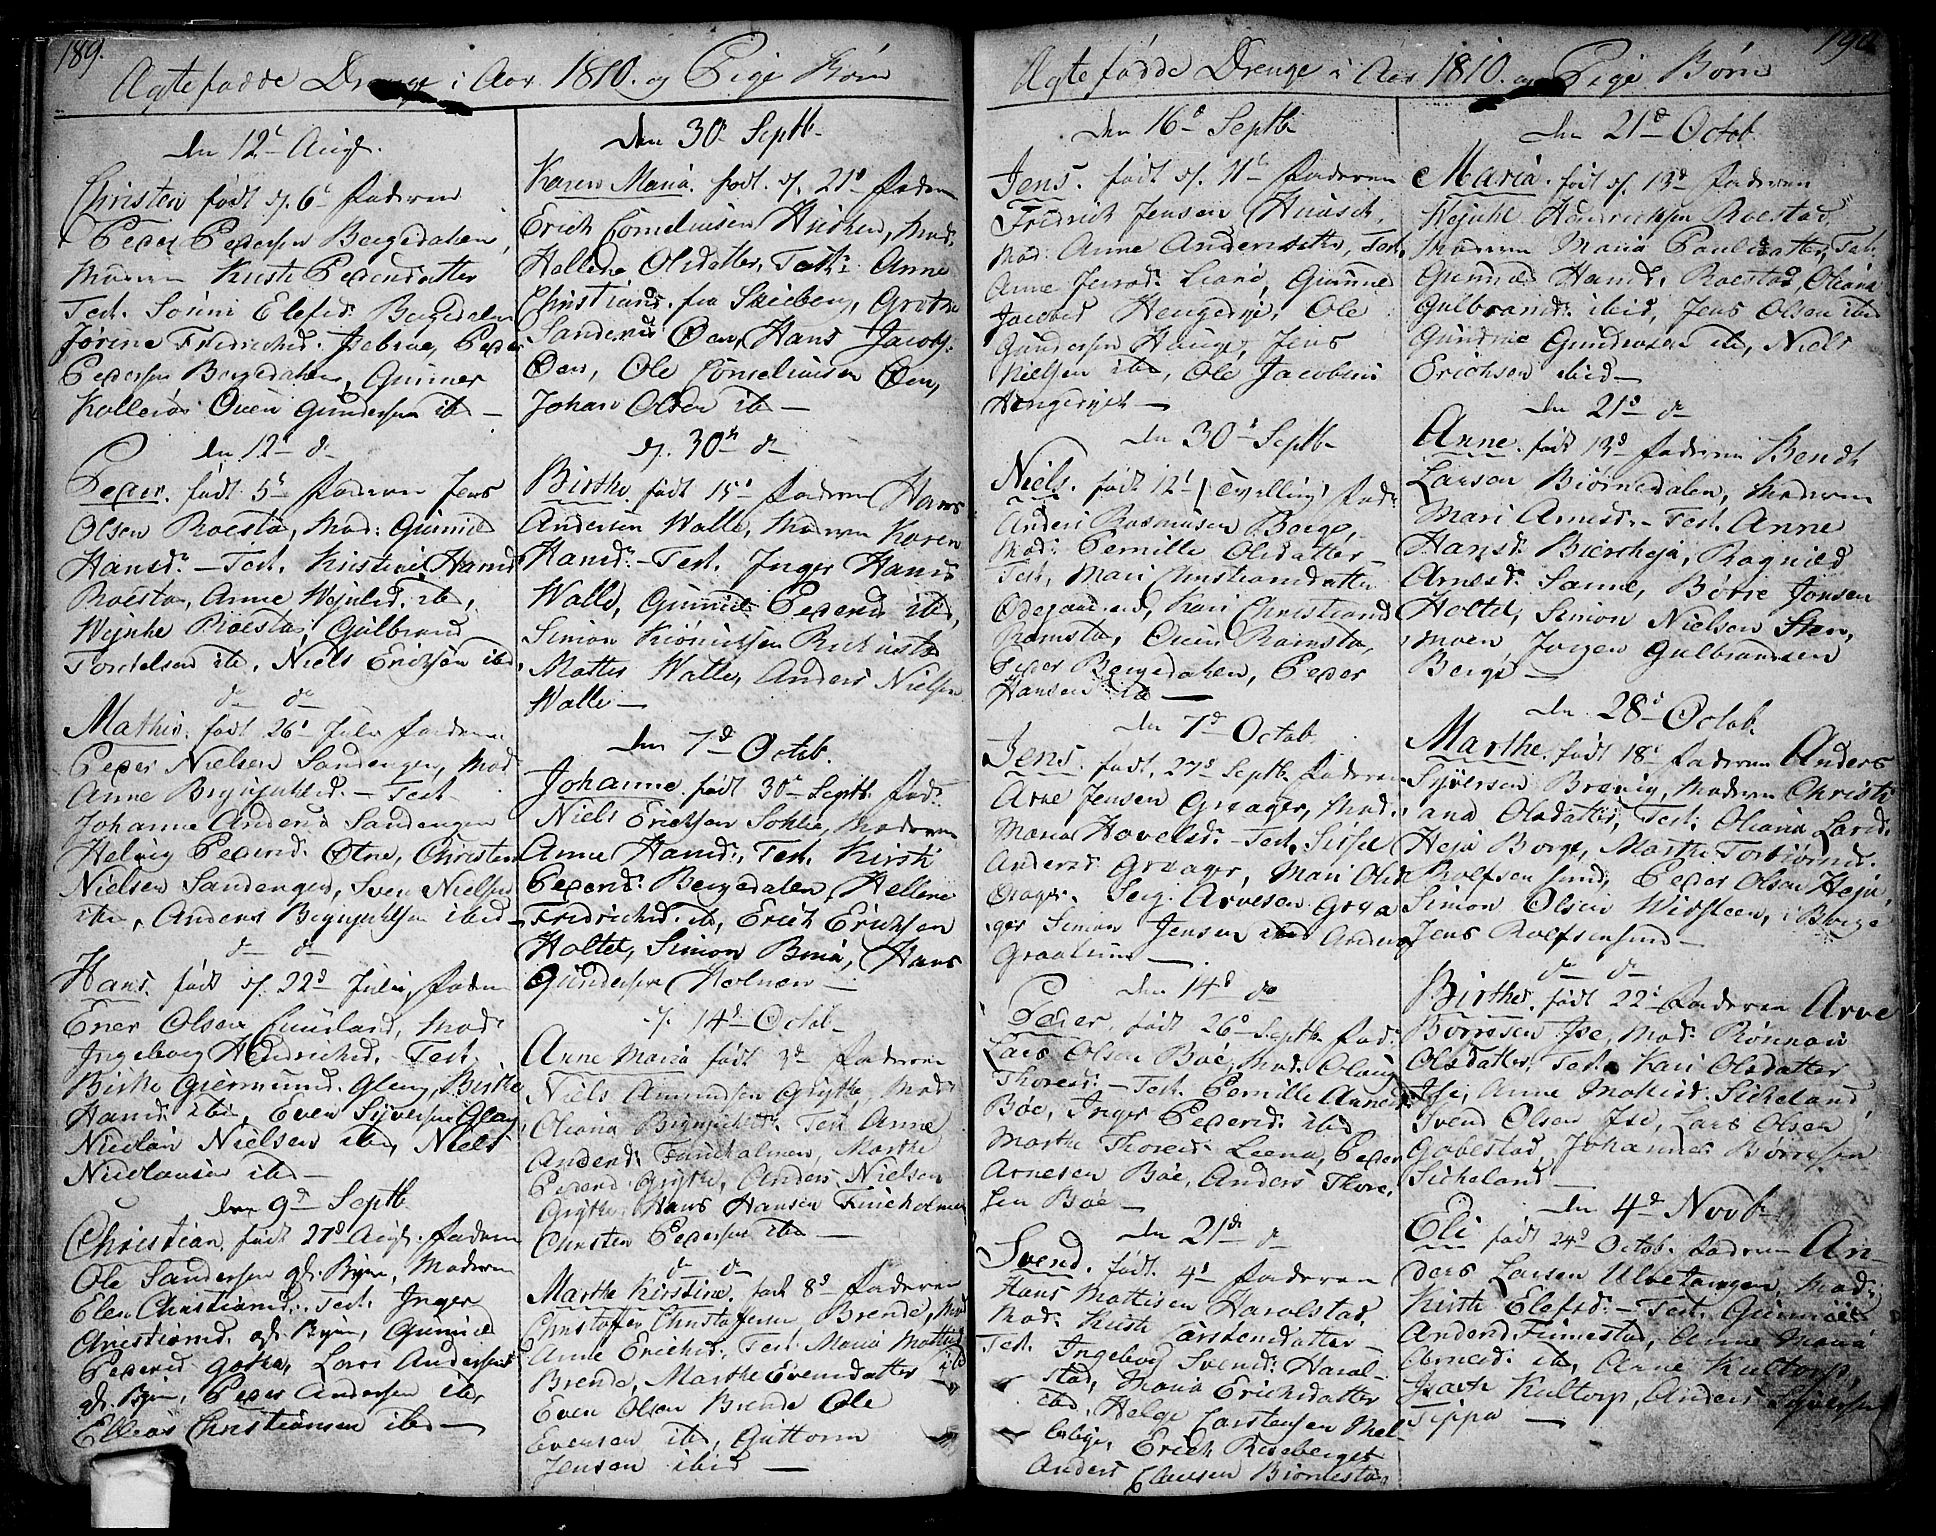 189.
Ægtefødde Drenge i Aar 1810. og Pige Børn
den 12te Aug.
Christen født d. 6te Faderen
Peder Pedersen Bergedahlen,
Moderen Kirsti Pedersdatter
Test. Sønni Elefsd. Bergedalen
Jørine Fredrichsd. Peder
Pedersen Bergedahlen, Gunner
Kollerös Oven Gundersen ibd —
den 12te do
Peder. født 5te Faderen Jens
Olsen Roestad, Mod: Gunnild
Hansdr. — Test. Kirstine Hansd
Roestad, Anne Wejulsd. ibd,
Wejuhl Roestad, Gulbrand
Torkelsen ibd, Niels Ericksen ibd.
do do
Mathis. født 26d Julii Faderen
Peder Nielsen Sandengen, Mod.
Anne Brynjuhlsd. — Test.
Johanne Andersd Sandengen
Helvig Pedersd. Øtne, Christen
Nielsen Sandengen, Sven Nielsen
ibd, Anders Brynjuhlsen ibid —
do do
Hans. født d. 22d Julii, Faderen
Ener Olsen Mod:
Ingeborg Hendrichsd. — Test.
Birthe Giermunds. Gleng, Birthe
Hansd: ibd, Even Syversen Gleng,
Nicolai Nielsen ibd, Niels
Nicolaisen ibd —
den 9d Septb.
Christian, født 27d Aug. Faderen
Ole Sandersen gdr. Byen, Moderen
Elen Christiansd., Test. Inger
Christiansd. gdr. Byen, Gunnild
Pedersd. Lars Andersen
gdr. Byen, Peder Andersen ibd,
Ellias Christiansen ibd —
den 30te Septb.
Karen Maria. født. d. 21d Faderen
Erich Cornelius en Mod.
Hellene Olsdatter, Test: Anne
Christiansd. fra Skieben, Grethe
Sandersd Øen, Hans Jacobs.
Øen, Ole Cornelius en Øen,
Johan Olsen ibd —
d. 30te do
Birthe. født 15d Faderen Hans
Andersen Walle, Moderen Karen
Hansdr. — Test. Inger Hansd
Walle, Gunnild Pedersd ibd,
Simon
Mattes Walle, Anders Nielsen
Walle —
den 7d Octob.
Johanne. født 30te Septb. Fad:
Niels Ericksen Sohlie, Moderen
Anne Hansd:, Test. Kirsti
Pedersd: Bergedalen, Hellene
Fredrichsd. ib, Erich Erichsen
Holtet, Simon Hans
Gundersen Holmen —
d. 14d Octob
Anne Maria født 3d Faderen
Niels Amundsen Grythe, Mod:
Oliana Brynjuhlsd: Test Anne
Andersd: Fuucholmen, Marthe
Pedersd Grythe, Anders Nielsen
Grythe, Hans Hansen Fuucholmen
Christen Pedersen ibd —
do do
Marthe Kirstine. født 8d Faderen
Christofer Christoffersen Brende, Mod
Anne Ericksd: Test: Maria Mattisd
Brende, Marthe Evensdatter — ibd
Even Olsen Brende Ole
Evensen ibd, Guttorm
Jensen ibid —
190.
Ægtefødde Drenge i Aar 1810. og Pige Børn
den 16d Septb
Jens. født d. 11te Faderen
Fredrich Jensen Huusch.
Mod: Anne Andersdatter, Test.
Anne Jensd: Gunnild
Jacobsd Hengerije, Ole
Gundersen Hauge, Jens
Nielsen ibd, Ole Jacobsen
Hengerije —
den 30te Septb
Niels. født 12d (Tvelling) Fad:
Anders Rasmusen Berge,
Mod: Pernille Olsdatter
Test, Mari Christiansdatter
Ødegaarden, Kari Christiansd
Ramsta, Ovin Ramsta,
Peder Bergedahlen, Peder
Hansen ibd —
den 7d Octob.
Jens. født. 27d Septb. Faderen
Arne Jensen Graager, Mod.
Maria Hovelsd. — Test. Sissel
Andersd: Graager, Mari Olsd.
Graager. Arvesen Graa
ger Simon Jensen ibd Anders
Graatuun —
den 14d do
Peder. født 26d Septb. Fad:
Lars Olsen Bøe, Mod. Olaug
Thoresd: — Test. Pernille Arnesd:
Bøe, Inger Pedersd. ibid
Marthe Thoresd: Leena, Peder
Arnesen Bøe, Anders Thore,
sen Bøe —
den 21de do
Svend. født. 4d Faderen
Hans Mattisen Haralstad,
Mod: Kirsti Carstensdatter —
Test. Ingeborg Svends: Haral-
stad, Maria Erichsdatter
ibd, Helge Carstensen Mel-
lebye, Erich Roseberget
Anders Clausen Biørnestad
den 21d Octob.
Maria. født d. 13d Faderen
Wejuhl Hendrichsen Roestad,
Moderen Maria Paulsdatter, Test.
Gunnild Hansd: Roestad, Oliana
Gulbrandsd: ibid, Jens Olsen ibd
Gundersen ibd, Niels
Erichsen ibid —
den 21d do
Anne. født 13d Faderen Bendt
Larsen Biørnedalen, Moderen
Mari Arnesd. — Test. Anne
Hansd: Ragnild
Arnesd. Sanne, Børre Jonsen
Holtet, Simon Nielsen Sten,
moen, Jørgen Gulbrandsen
Berge —
den 28d Octob.
Marthe. født 18d Faderen Anders
Syversen Brevig, Moderen Christi
ana Olsdatter, Test: Oliana Larsd.
Heja Borge, Marthe Torbiørnsd.
Rolfsensund, Peder Olsen Heja,
Simon Olsen Widsteen, i Borge
Jens Rolfsensund —
do do
Birthe. født 22d Faderen Arve
Børresen Ise, Mod: Rønnau
Olsdatter, Test. Kari Olsdatter
Ise, Anne Mathisd: Sickeland,
Svend Olsen Ise, Lars Olsen
Gabestad, Johannes Børresen
Sickeland —
den 4d Novb
Eli født 24d Octob. Faderen An-
ders Larsen Ulvetangen, Mod:
Kirsti Elefsd: — Test. Gunnild
Andersd Finnestad, Anne Maria
Arnesd: ibd, Anne Kultorp,
Isach Kultorp, Anders Syversen
Tippa —